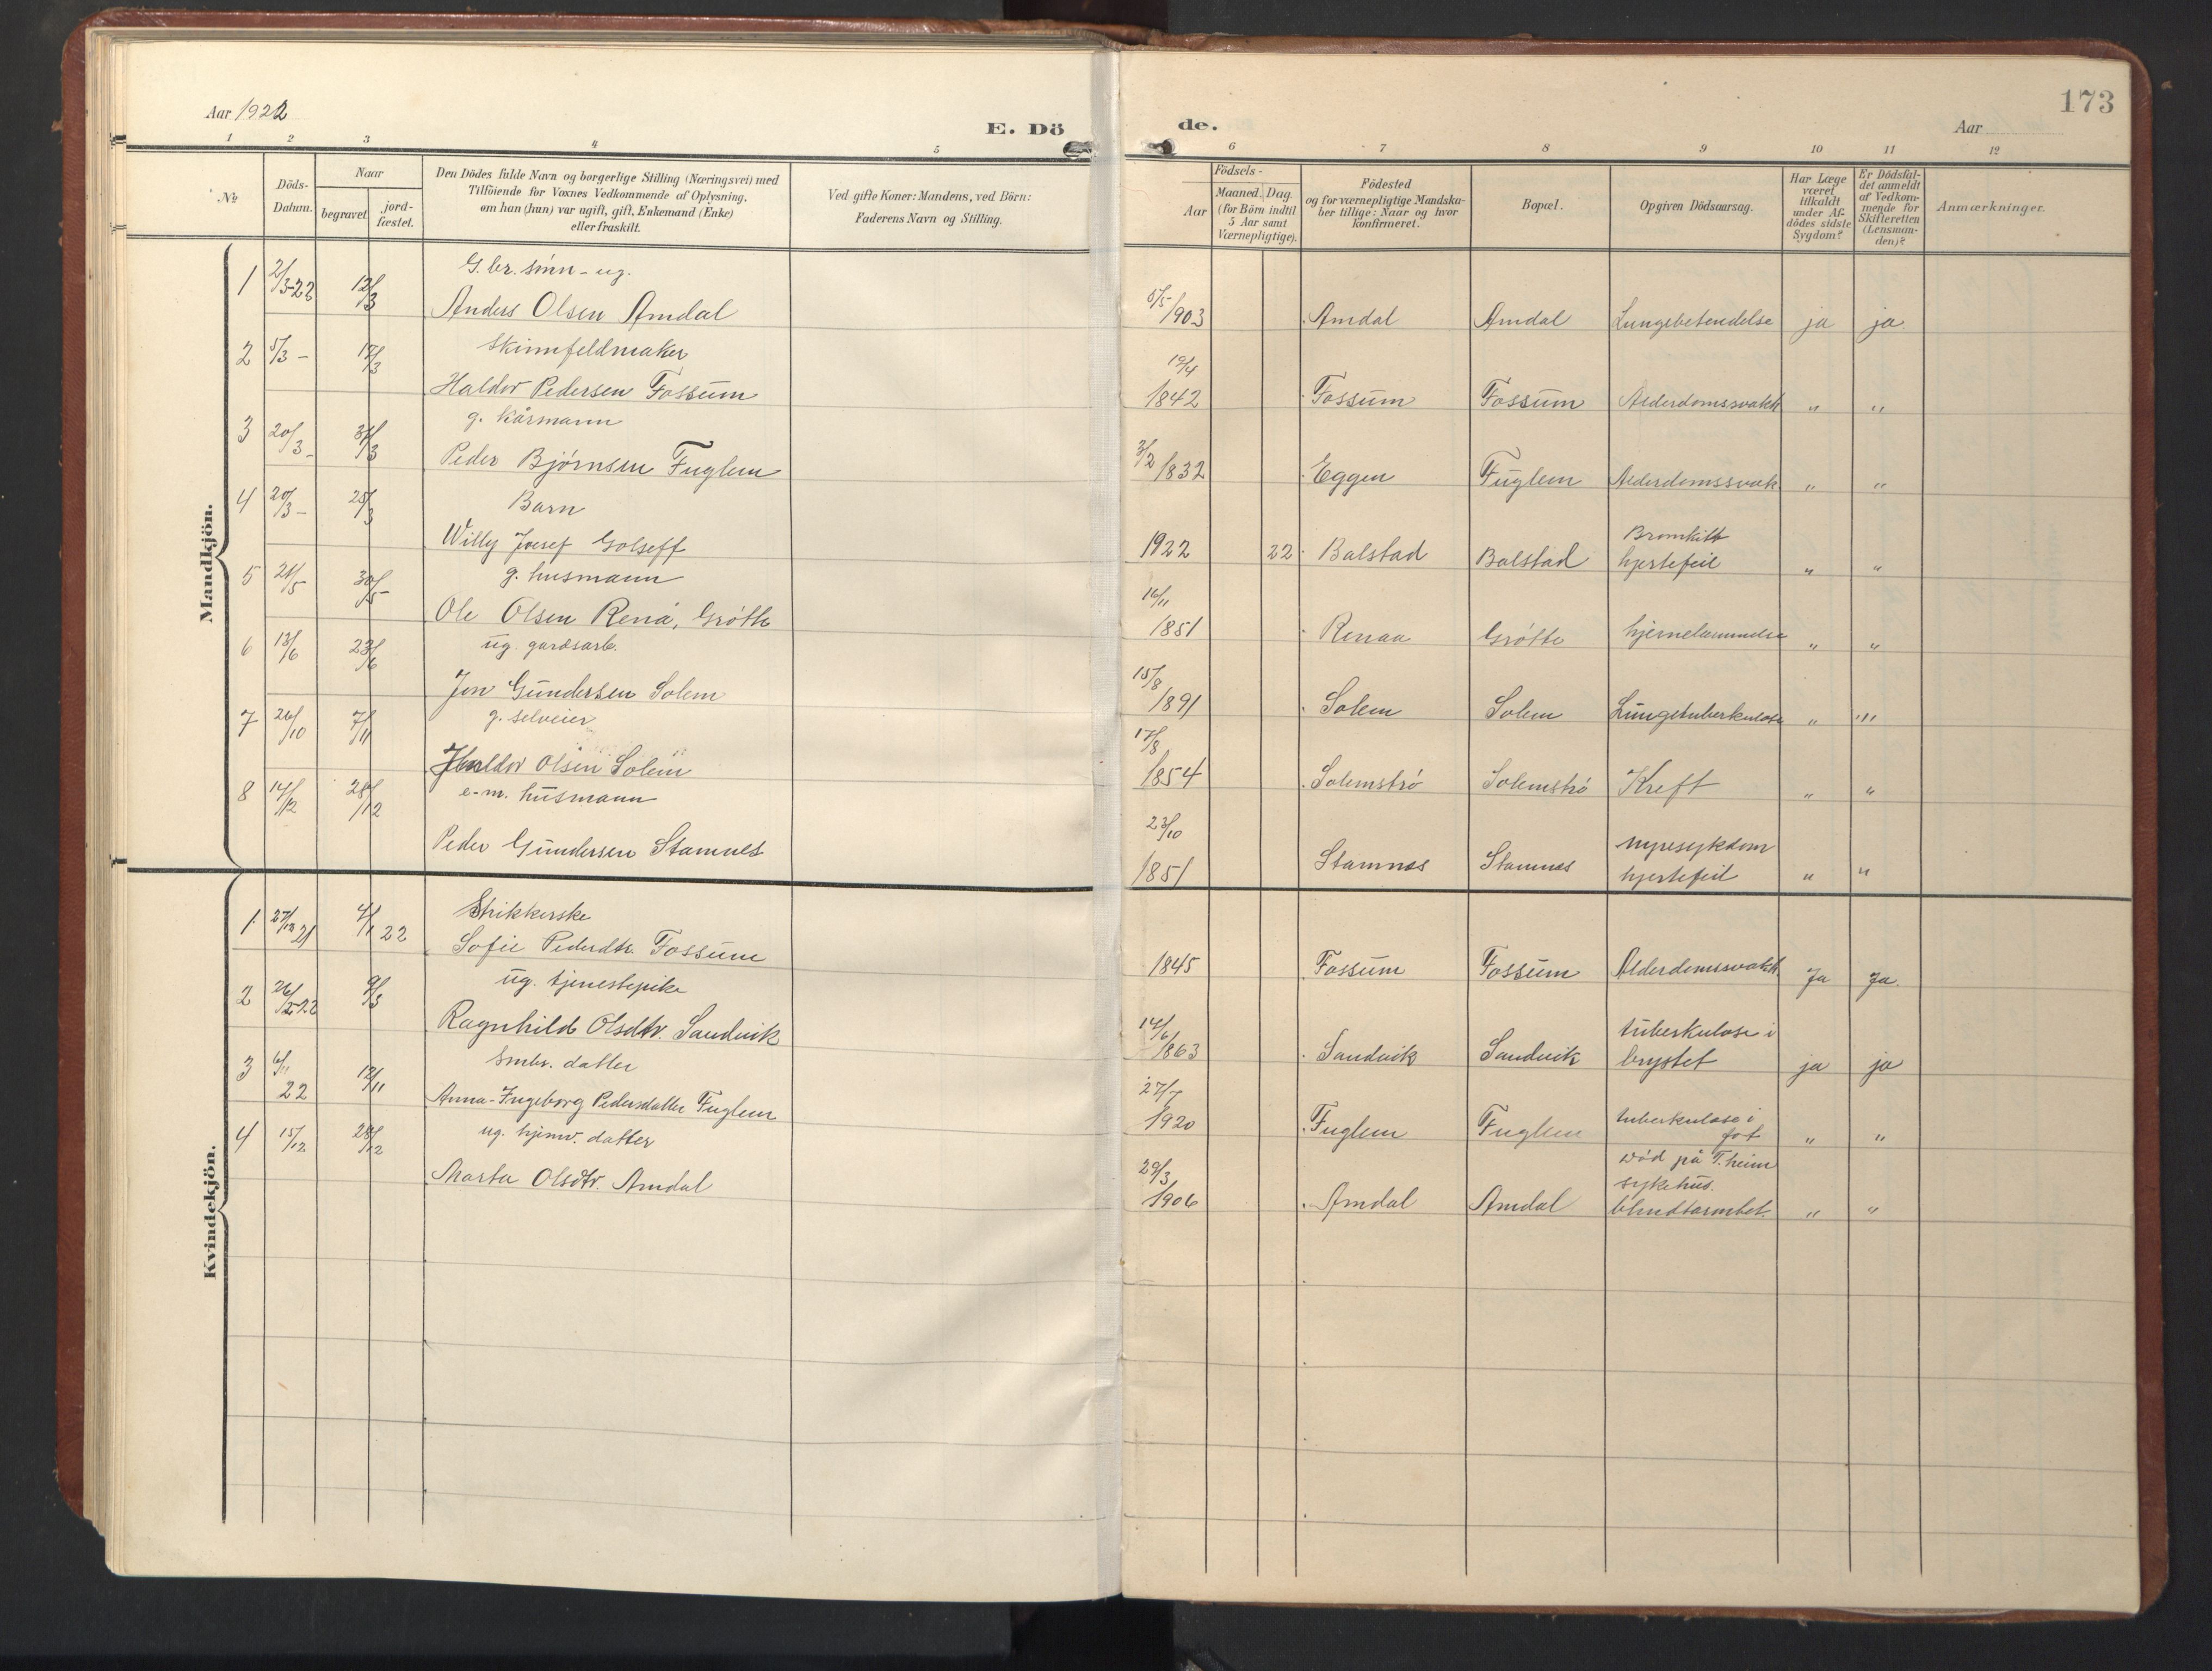 Aar 1922
E. Dö
1 2 3 4 5
№
Döds-
Datum.
Naar
begravet
jord-
fæstet.
Den Dödes fulde Navn og borgerlige Stilling (Næringsvei) med
Tilföiende for Voxnes Vedkommende af Oplysning,
om han (hun) var ugift, gift, Enkemand (Enke)
eller fraskilt.
Ved gifte Koner: Mandens, ved Börn:
Faderens Navn og Stilling.
Mandkjön.
G.br. sønn - ug.
1 2/3-22 12/3 Anders Olsen Amdal
skinnfeldmaker
2 5/3 - 12/3 Haldor Pedersen Fossum
g. kårmann
3 20/3 - 31/3 Peder Bjørnsen Fuglem
Barn
4 20/3 - 25/3 Willy Josef Golseff
g. husmann
5 21/5 30/5 Ole Olsen Renå, Grøtte
ug. gardsarb.
6 13/6 23/6 Jon Gundersen Solem
g. selveier
7 26/10 7/11 Haldor Olsen Solem
e-m. husmann
8 14/12 28/12 Peder Gundersen Stamnes
Kvindekjön.
Strikkerske
1 27/12 21 4/1 22 Sofie Pedersdtr. Fossum
ug. tjenestepike
2 26/2-22 9/3 Ragnhild Olsdtr. Sandvik
Smbr. datter
3 6/11 22 12/11 Anna-Ingeborg Pedersdatter Fuglem
ug. hjemv. datter
4 15/12 28/12 Marta Olsdtr. Amdal
de.
173
Aar
6 7 8 9 10 11 12
Födsels-
Aar
Maaned.
Dag.
(for Börn indtil
5 Aar samt
Værnepligtige).
Födested
og for værnepligtige Mandska-
ber tillige: Naar og hvor
konfirmeret.
Bopæl.
Opgiven Dödsaarsag.
Har Læge
været
tilkaldt
under Af-
dödes sidste
Sygdom?
Er Dödsfal-
det anmeldt
af Vedkom-
mende for
Skifteretten
(Lensman-
den)?
Anmærkninger.
5/5
1903 Amdal Amdal Lungebetendelse ja ja
19/4
1842 Fossum Fossum Alderdomssvakh " "
3/2 1832 Eggen Fuglem Alderdomssvak " "
Bronkitt
1922 22 Balstad Balstad hjertefeil " "
16/11
1851 Renaa Grøtte hjernelammelse " "
15/8
1891 Solem Solem Lungetuberkulose " "
17/8
1854 Solemstrø Solemstrø Kreft " "
23/10 nyresykdom
1851 Stamnes Stamnes hjertefeil " "
1845 Fossum Fossum Alderdomssvakh Ja Ja.
14/6 tuberkulose i
1863 Sandvik Sandvik brystet ja ja
27/7 tuberkulose i
1920 Fuglem Fuglem fot " "
29/3 død på T.heim
sykehus.
1906 Amdal Amdal blindtarmbet. " "